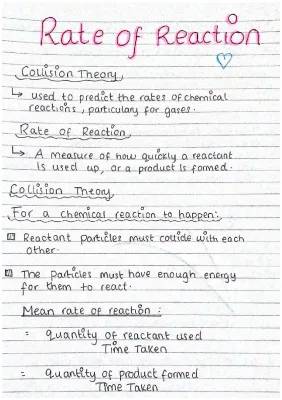 Rate of Reaction
Collision Theory
↳ used to predict the rates of chemical
reactions, particulary for gases.
Rate of Reaction
↳ A measure of how quickly a reactant
is used up, or a product is formed.
Collision Theory
For a chemical reaction to happen:
Reactant particles must collide with each
other.
The particles must have enough energy
for them to react.
Mean rate of reaction :
= quantity of reactant used
Time Taken
= quantity of product formed
Time Taken